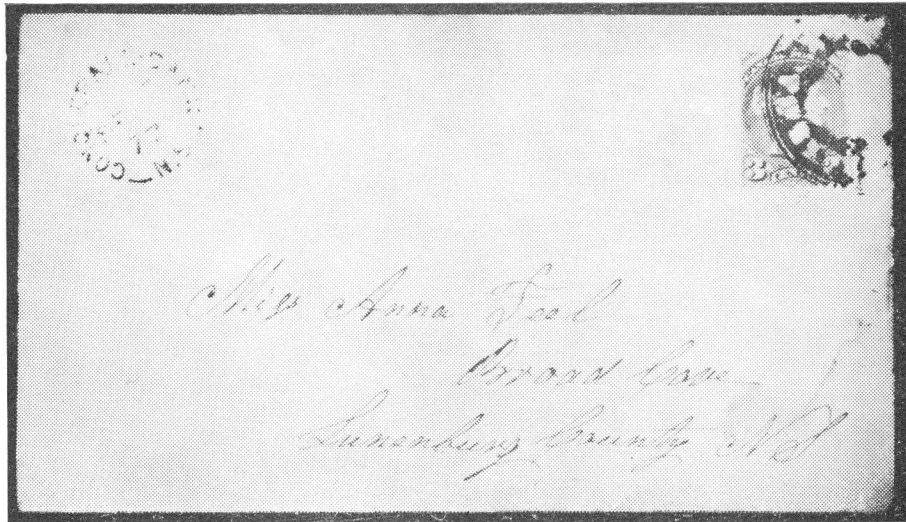 Miss Anna Teel
Broad Cove
Lunenburg County N S